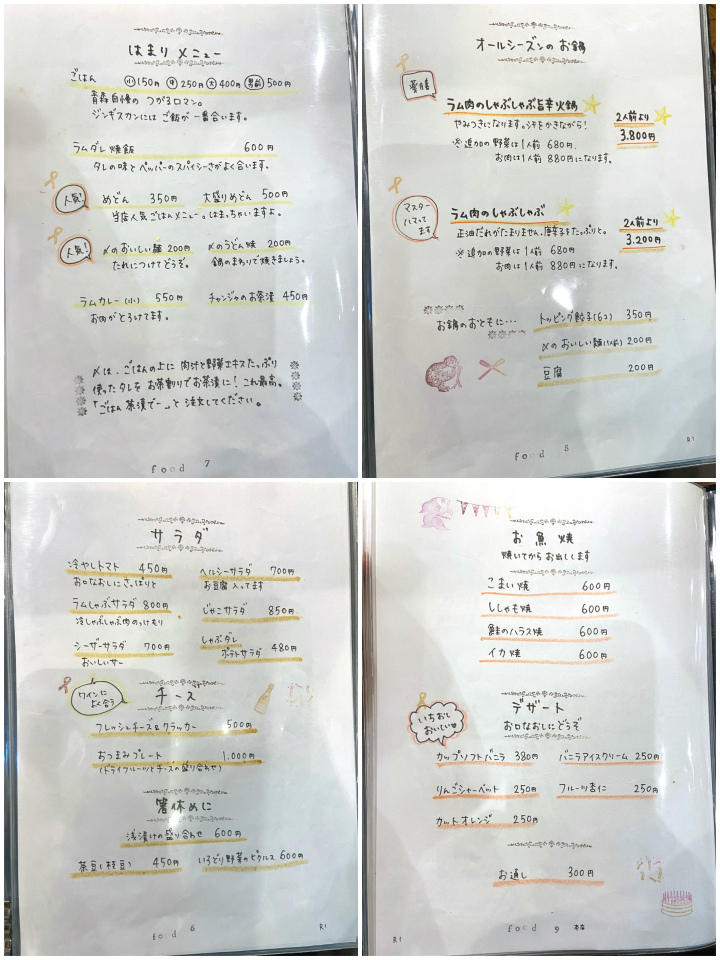 はまりメニュー
ごはん 小150円 中250円 大400円 男前500円
青森自慢の つがるロマン。
ジンギスカンには ご飯が一番合います。
ラムダレ焼飯 600円
タレの味とペッパーのスパイシーさがよく合います。
人気!
めどん 350円 大盛りめどん 500円
当店人気ごはんメニュー。はまっちゃいますよ。
人気!
〆のおいしい麺 200円 〆のうどん焼 200円
たれにつけてどうぞ。 鍋のまわりで焼きましょう。
ラムカレー(小) 550円 チャンジャのお茶漬 450円
お肉がとろけてます。
〆は、ごはんの上に 肉汁と野菜エキスたっぷり
使ったタレを お茶割りでお茶漬に!これ最高。
「ごはん茶漬でー」と 注文してください。
food 7
オールシーズンのお鍋
薬膳
ラム肉のしゃぶしゃぶ旨辛火鍋
2人前より
3.800円
やみつきになります。汗をかきながら!
※追加の野菜は1人前 680円
お肉は1人前 880円になります。
マスター
ハマって
ます
ラム肉のしゃぶしゃぶ
2人前より
3.200円
正油だれがたまりません。唐辛子をたっぷりと。
※追加の野菜は1人前 680円
お肉は1人前 880円になります。
お鍋のおともに…
トッピング餃子(6コ) 350円
〆のおいしい麺(1人前) 200円
豆腐 200円
food 8
R1
サラダ
冷やしトマト 450円 ヘルシーサラダ 700円
お口なおしにさっぱりと お豆腐入ってます
ラムしゃぶサラダ 800円 じゃこサラダ 850円
冷しゃぶしゃぶ肉のっけもり
シーザーサラダ 700円 しゃぶダレ
ポテトサラダ 480円
おいしいサー
ワインに
よく合う
チーズ
フレッシュチーズ&クラッカー 500円
おつまみプレート 1.000円
(ドライフルーツとチーズの盛り合わせ)
箸休めに
浅漬けの盛り合わせ 600円
茶豆(枝豆) 450円 いろどり野菜のピクルス 600円
food 6
R1
お魚焼
焼いてから お出しします
こまい焼 600円
ししゃも焼 600円
鮭のハラス焼 600円
イカ焼 600円
いちおし
おいしい
デザート
お口なおしにどうぞ
カップソフトバニラ 380円 バニラアイスクリーム 250円
りんごシャーベット 250円 フルーツ杏仁 250円
カットオレンジ 250円
お通し 300円
food 9 本店
R1